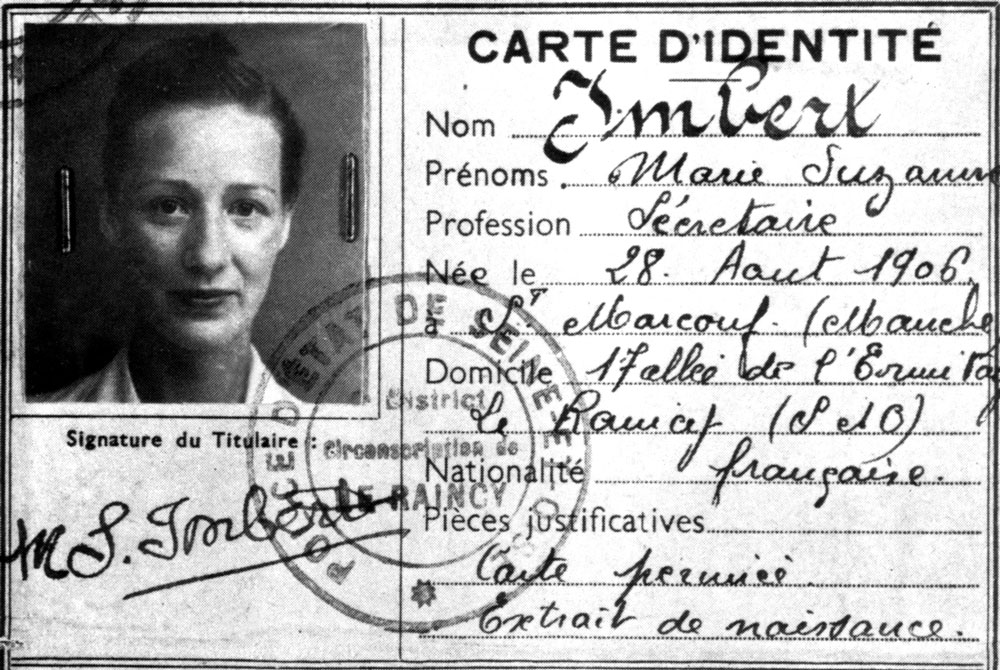 CARTE D'IDENTITÉ
Nom Imbert
Prénoms. Marie Suzanne
Profession Sécretaire
Née le 28. Aout 1906.
à St Marcouf. (Manche
Domicile 17 allée de l'Ermita
Le Raincy (S et O)
Nationalité française.
Pièces justificatives
Carte
Extrait de naissance.
Signature du Titulaire :
M S. Imbert
DE SEINE-ET-O
District
Circonscription de
LE RAINCY